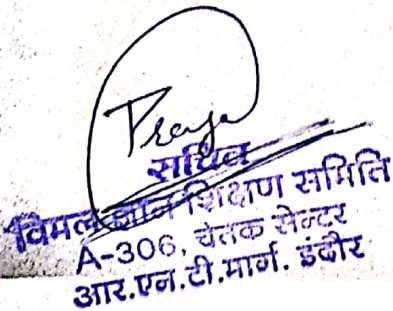 सचिव
विमल ज्ञान शिक्षण समिति
A-306, चेतक सेन्टर
आर.एन.टी.मार्ग. इंदौर